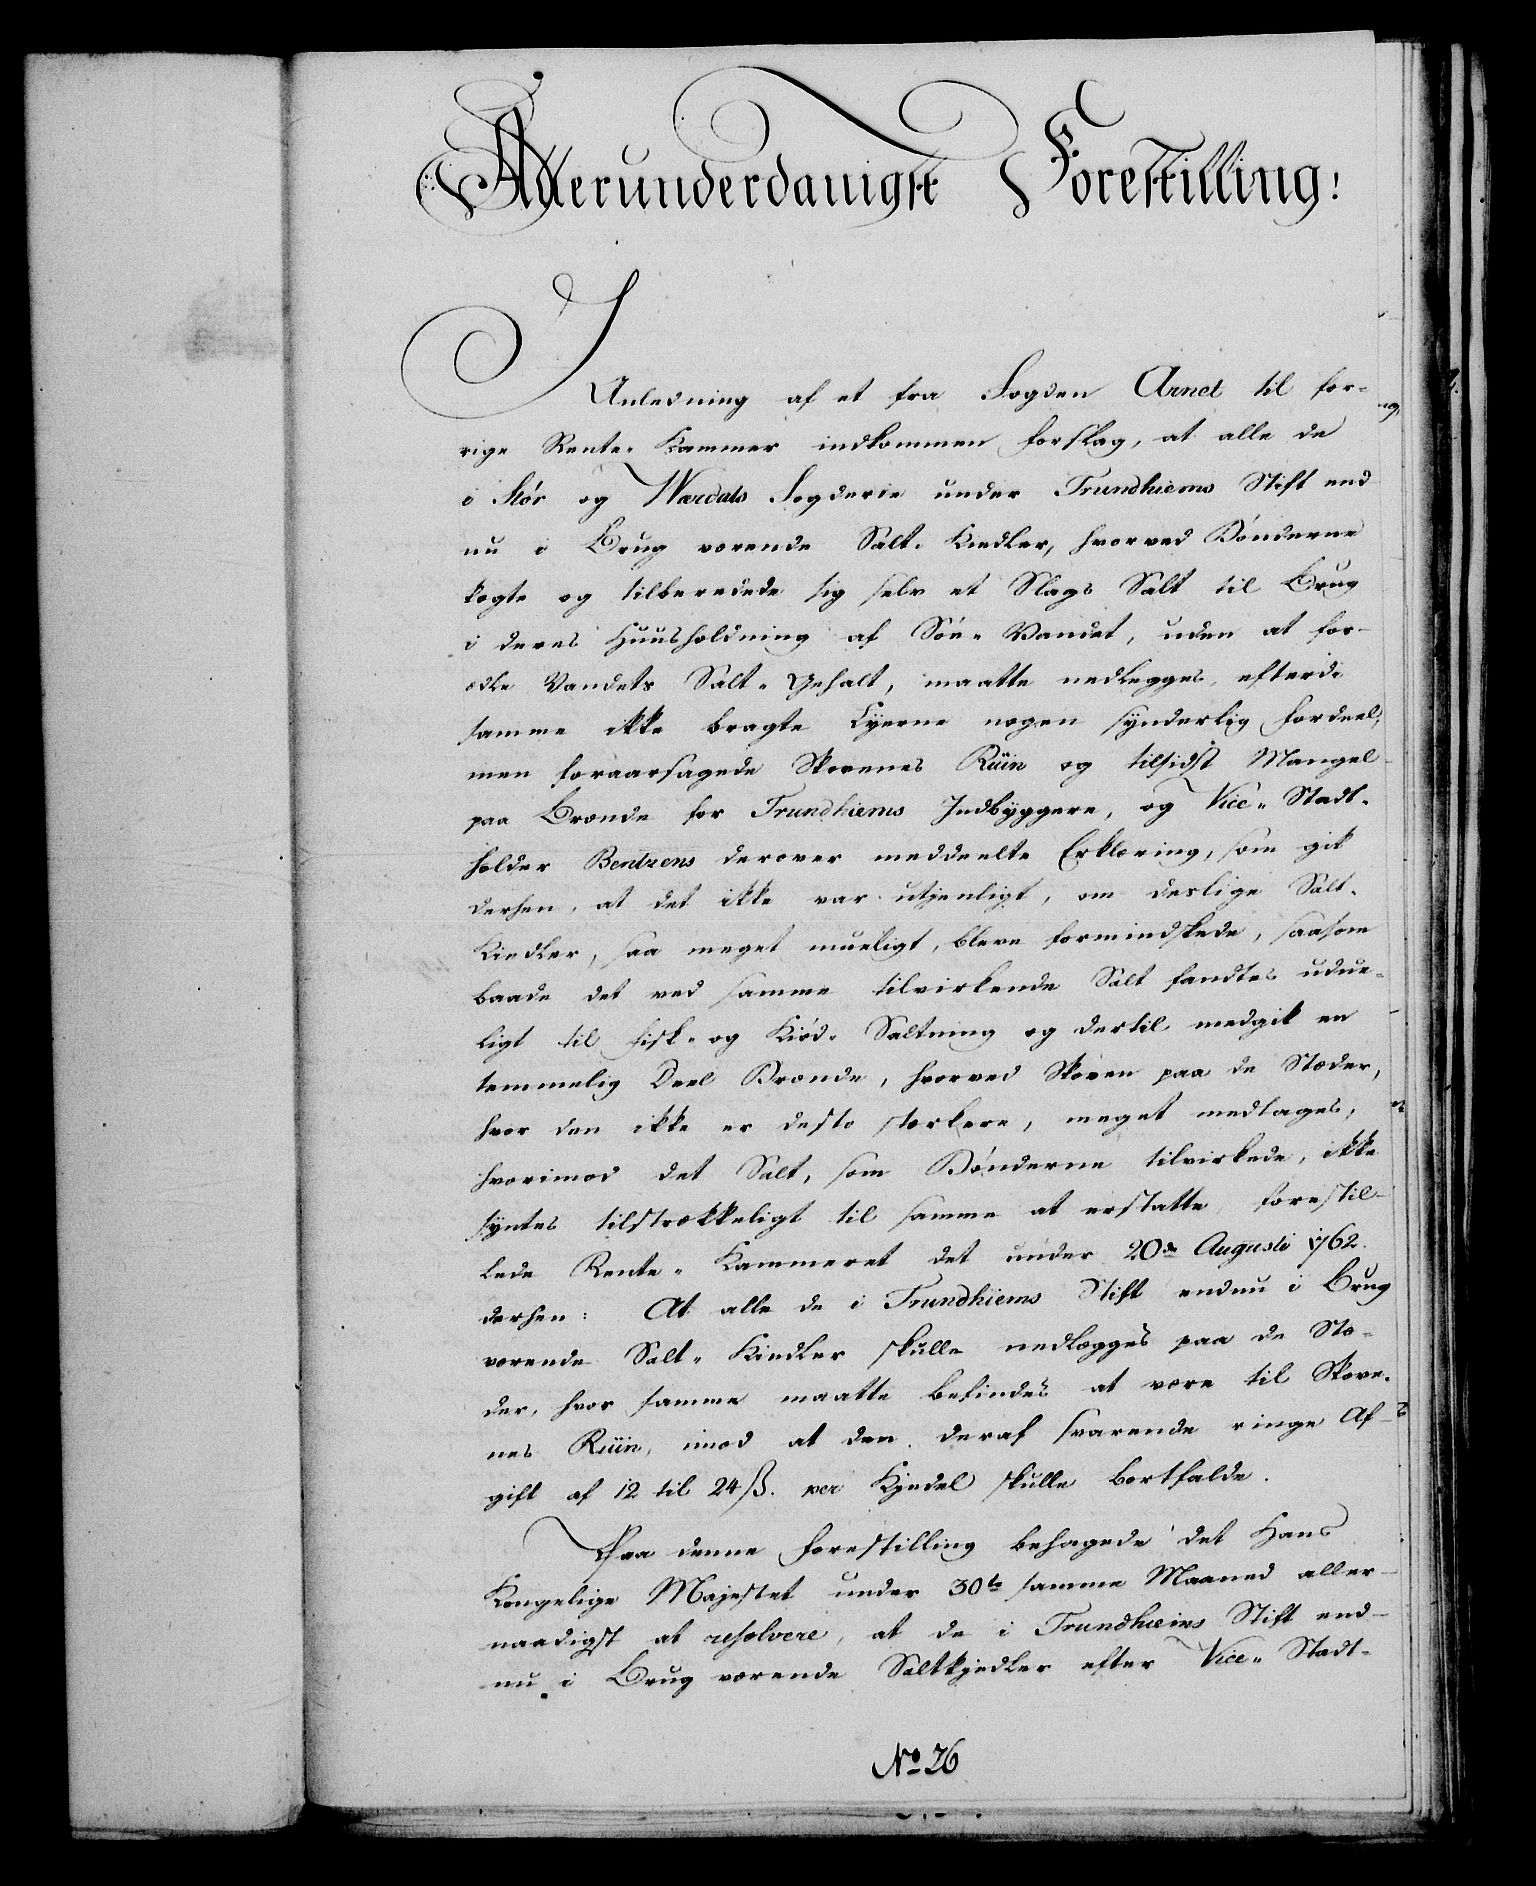 Allerunderdanigst Forestilling!
I
Anledning af et fra Fogden Arnet til for-
rige Rente-Kammer indkommen Forslag, at alle de
i Stór og Værdals Fogderie under Trundhiems Stift end
nu i Brug værende Salt-Kiedler, hvorved Bónderne
kogte og tilberedede sig selv et Slags Salt til Brug
i deres Huusholdning af Sóe-Vandet, uden at for-
ædle Vandets Salt-Gehalt, maatte nedlegges, efterdi
samme ikke bragte Eyerne nogen synderlig Fordeel,
men foraarsagede Skovenes Ruin og tilsidst Mangel
paa Brænde for Trundhiems Indbyggere, og Vice-Stadt-
holder Bentzens derover meddeelte Erklæring, som gik
derhen, at det ikke var utjenligt, om deslige Salt-
Kiedler, saa meget mueligt, bleve formindskede, saasom
baade det ved samme tilvirkende Salt fandtes udue-
ligt til Fisk- og Kiód-Saltning og dertil medgik en
temmelig Deel Brænde, hvorved Skoven paa de Stæder,
hvor den ikke er desto stærkere, meget medtages,
hvorimod det Salt, som Bónderne tilvirkede, ikke
syntes tilstrækkeligt til samme at erstatte, forestil-
lede Rente-Kammeret det under 20de Augusti 1762.
derhen: At alle de i Trundhiems Stift endnu i Brug
værende Salt-Kiedler skulle nedlægges paa de Stæ-
der, hvor samme maatte befindes at være til Skove-
nes Ruin, imod at den deraf svarende ringe Af-
gift af 12 til 24 ß. per Kjedel skulle bortfalde.
Paa denne Forestilling behagede det Hans
Kongelige Majestet under 30te samme Maaned aller-
naadigst at resolvere, at de i Trundhiems Stift end-
nu i Brug værende Saltkjedler efter Vice-Stadt-
No 26